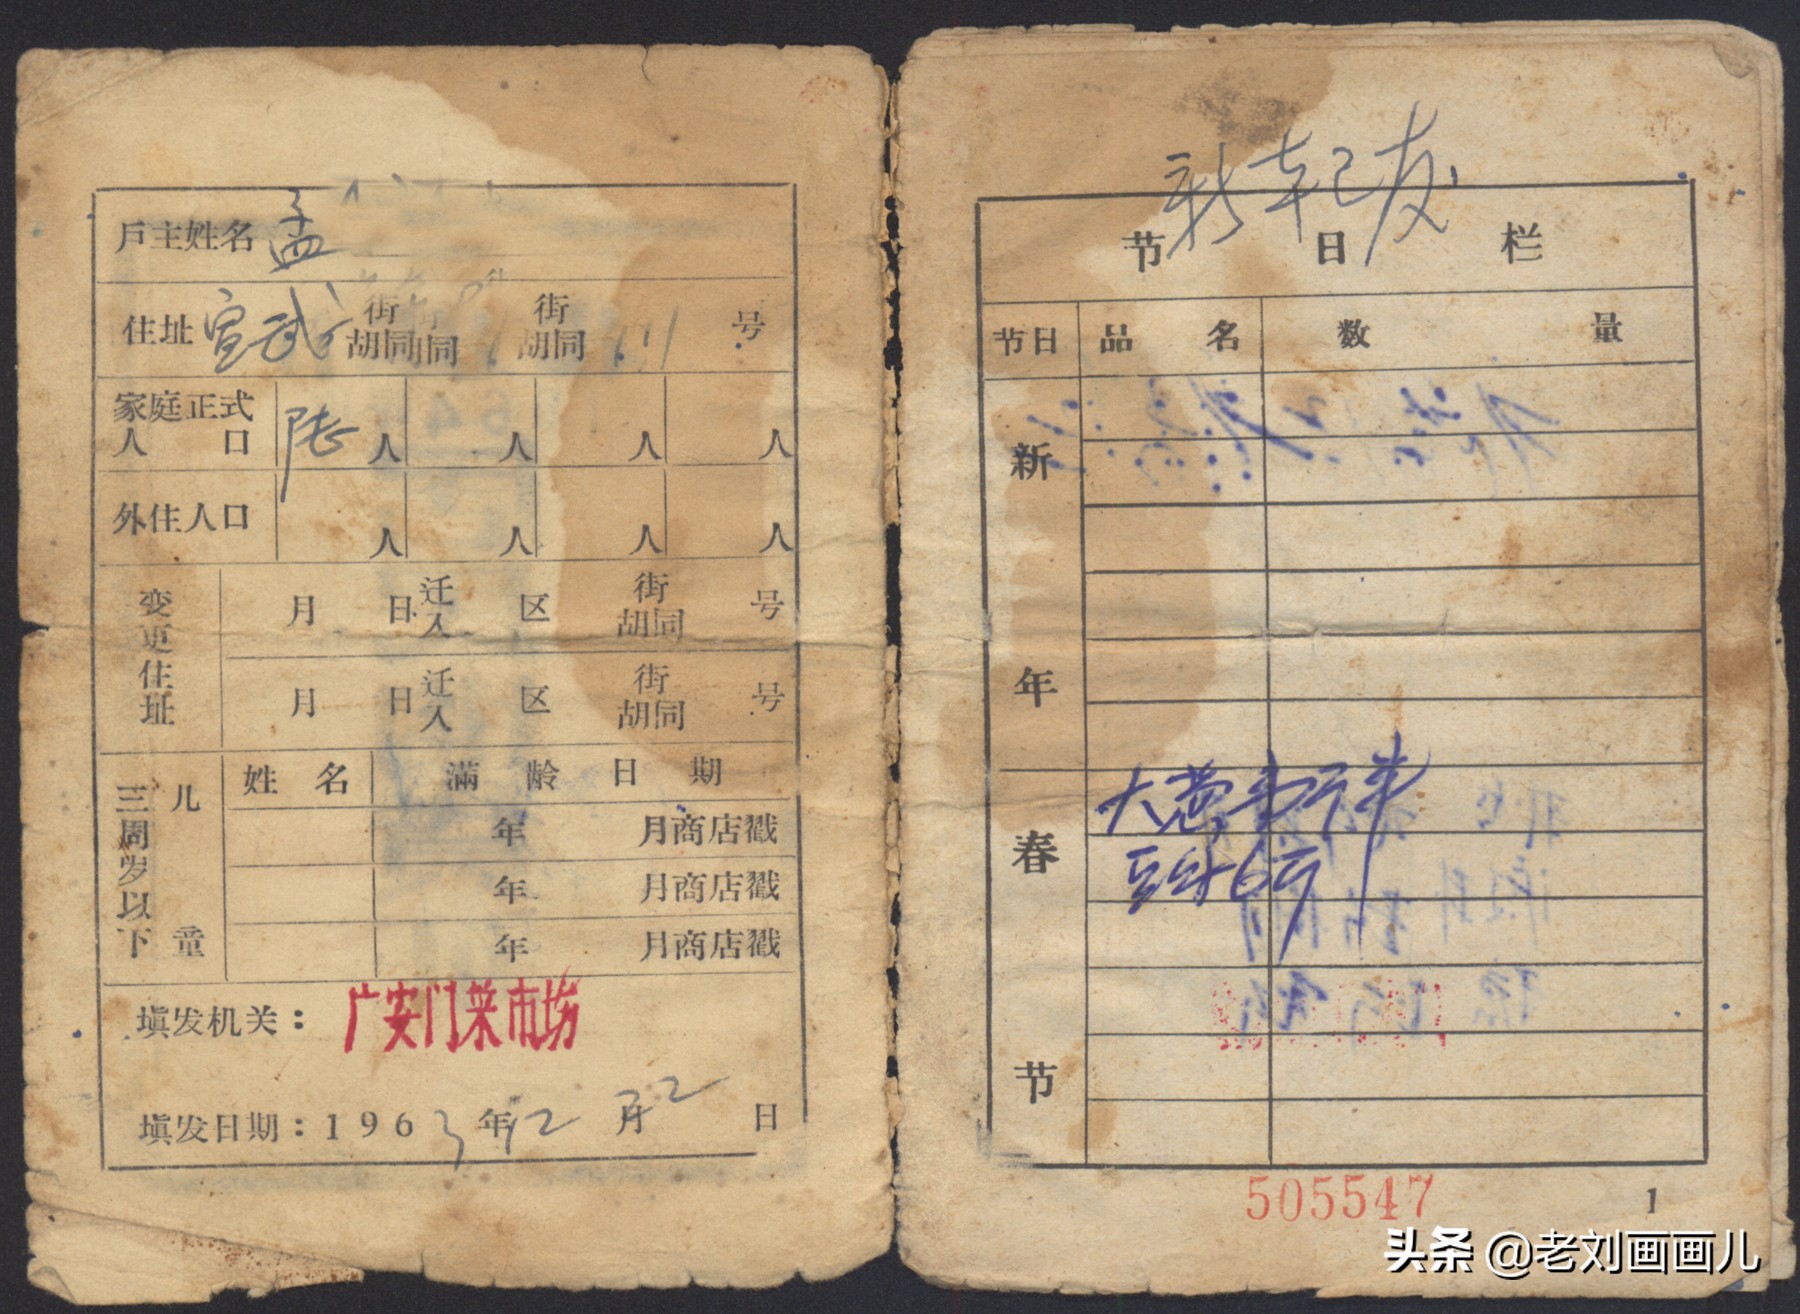 户主姓名 孟
住址 宣武 街 胡同 胡同 街 胡同 号
家庭正式人口 陆人 人 人 人
外住人口 人 人 人 人
变更住址
月 日 迁入 区 街 胡同 号
月 日 迁入 区 街 胡同 号
三周岁以下儿童
姓 名 满 龄 日 期
年 月 商店戳
年 月 商店戳
年 月 商店戳
填发机关： 广安门菜市场
填发日期：1963年12月2日
新车已发
节 日 栏
节日 品 名 数 量
新 年
春 节
大葱
6斤
505547
1
头条 @老刘画画儿